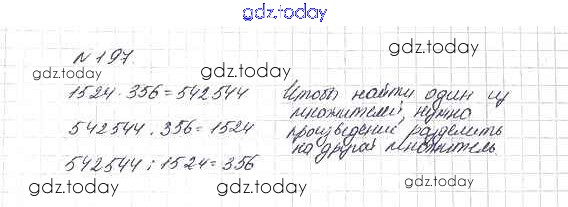 gdz.today
N 197
gdz.today
gdz.today
gdz.today
1524 · 356 = 542544
Чтобы найти один из
множителей, нужно
542544 : 356 = 1524
произведение разделить
на другой множитель.
542544 : 1524 = 356
gdz.today
gdz.today
gdz.today